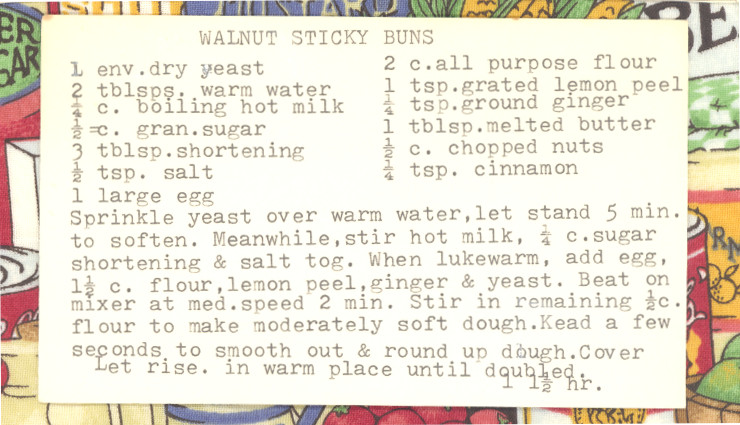 WALNUT STICKY BUNS
1 env.dry yeast
2 tblsps. warm water
¼ c. boiling hot milk
½ =c. gran.sugar
3 tblsp.shortening
½ tsp. salt
1 large egg
2 c.all purpose flour
1 tsp.grated lemon peel
¼ tsp.ground ginger
1 tblsp.melted butter
½ c. chopped nuts
¼ tsp. cinnamon
Sprinkle yeast over warm water,let stand 5 min.
to soften. Meanwhile,stir hot milk, ¼ c.sugar
shortening & salt tog. When lukewarm, add egg,
1½ c. flour,lemon peel,ginger & yeast. Beat on
mixer at med.speed 2 min. Stir in remaining ½c.
flour to make moderately soft dough.Kead a few
seconds to smooth out & round up dough.Cover
Let rise. in warm place until doubled.
1 1½ hr.
ER
GAR
BE
RN